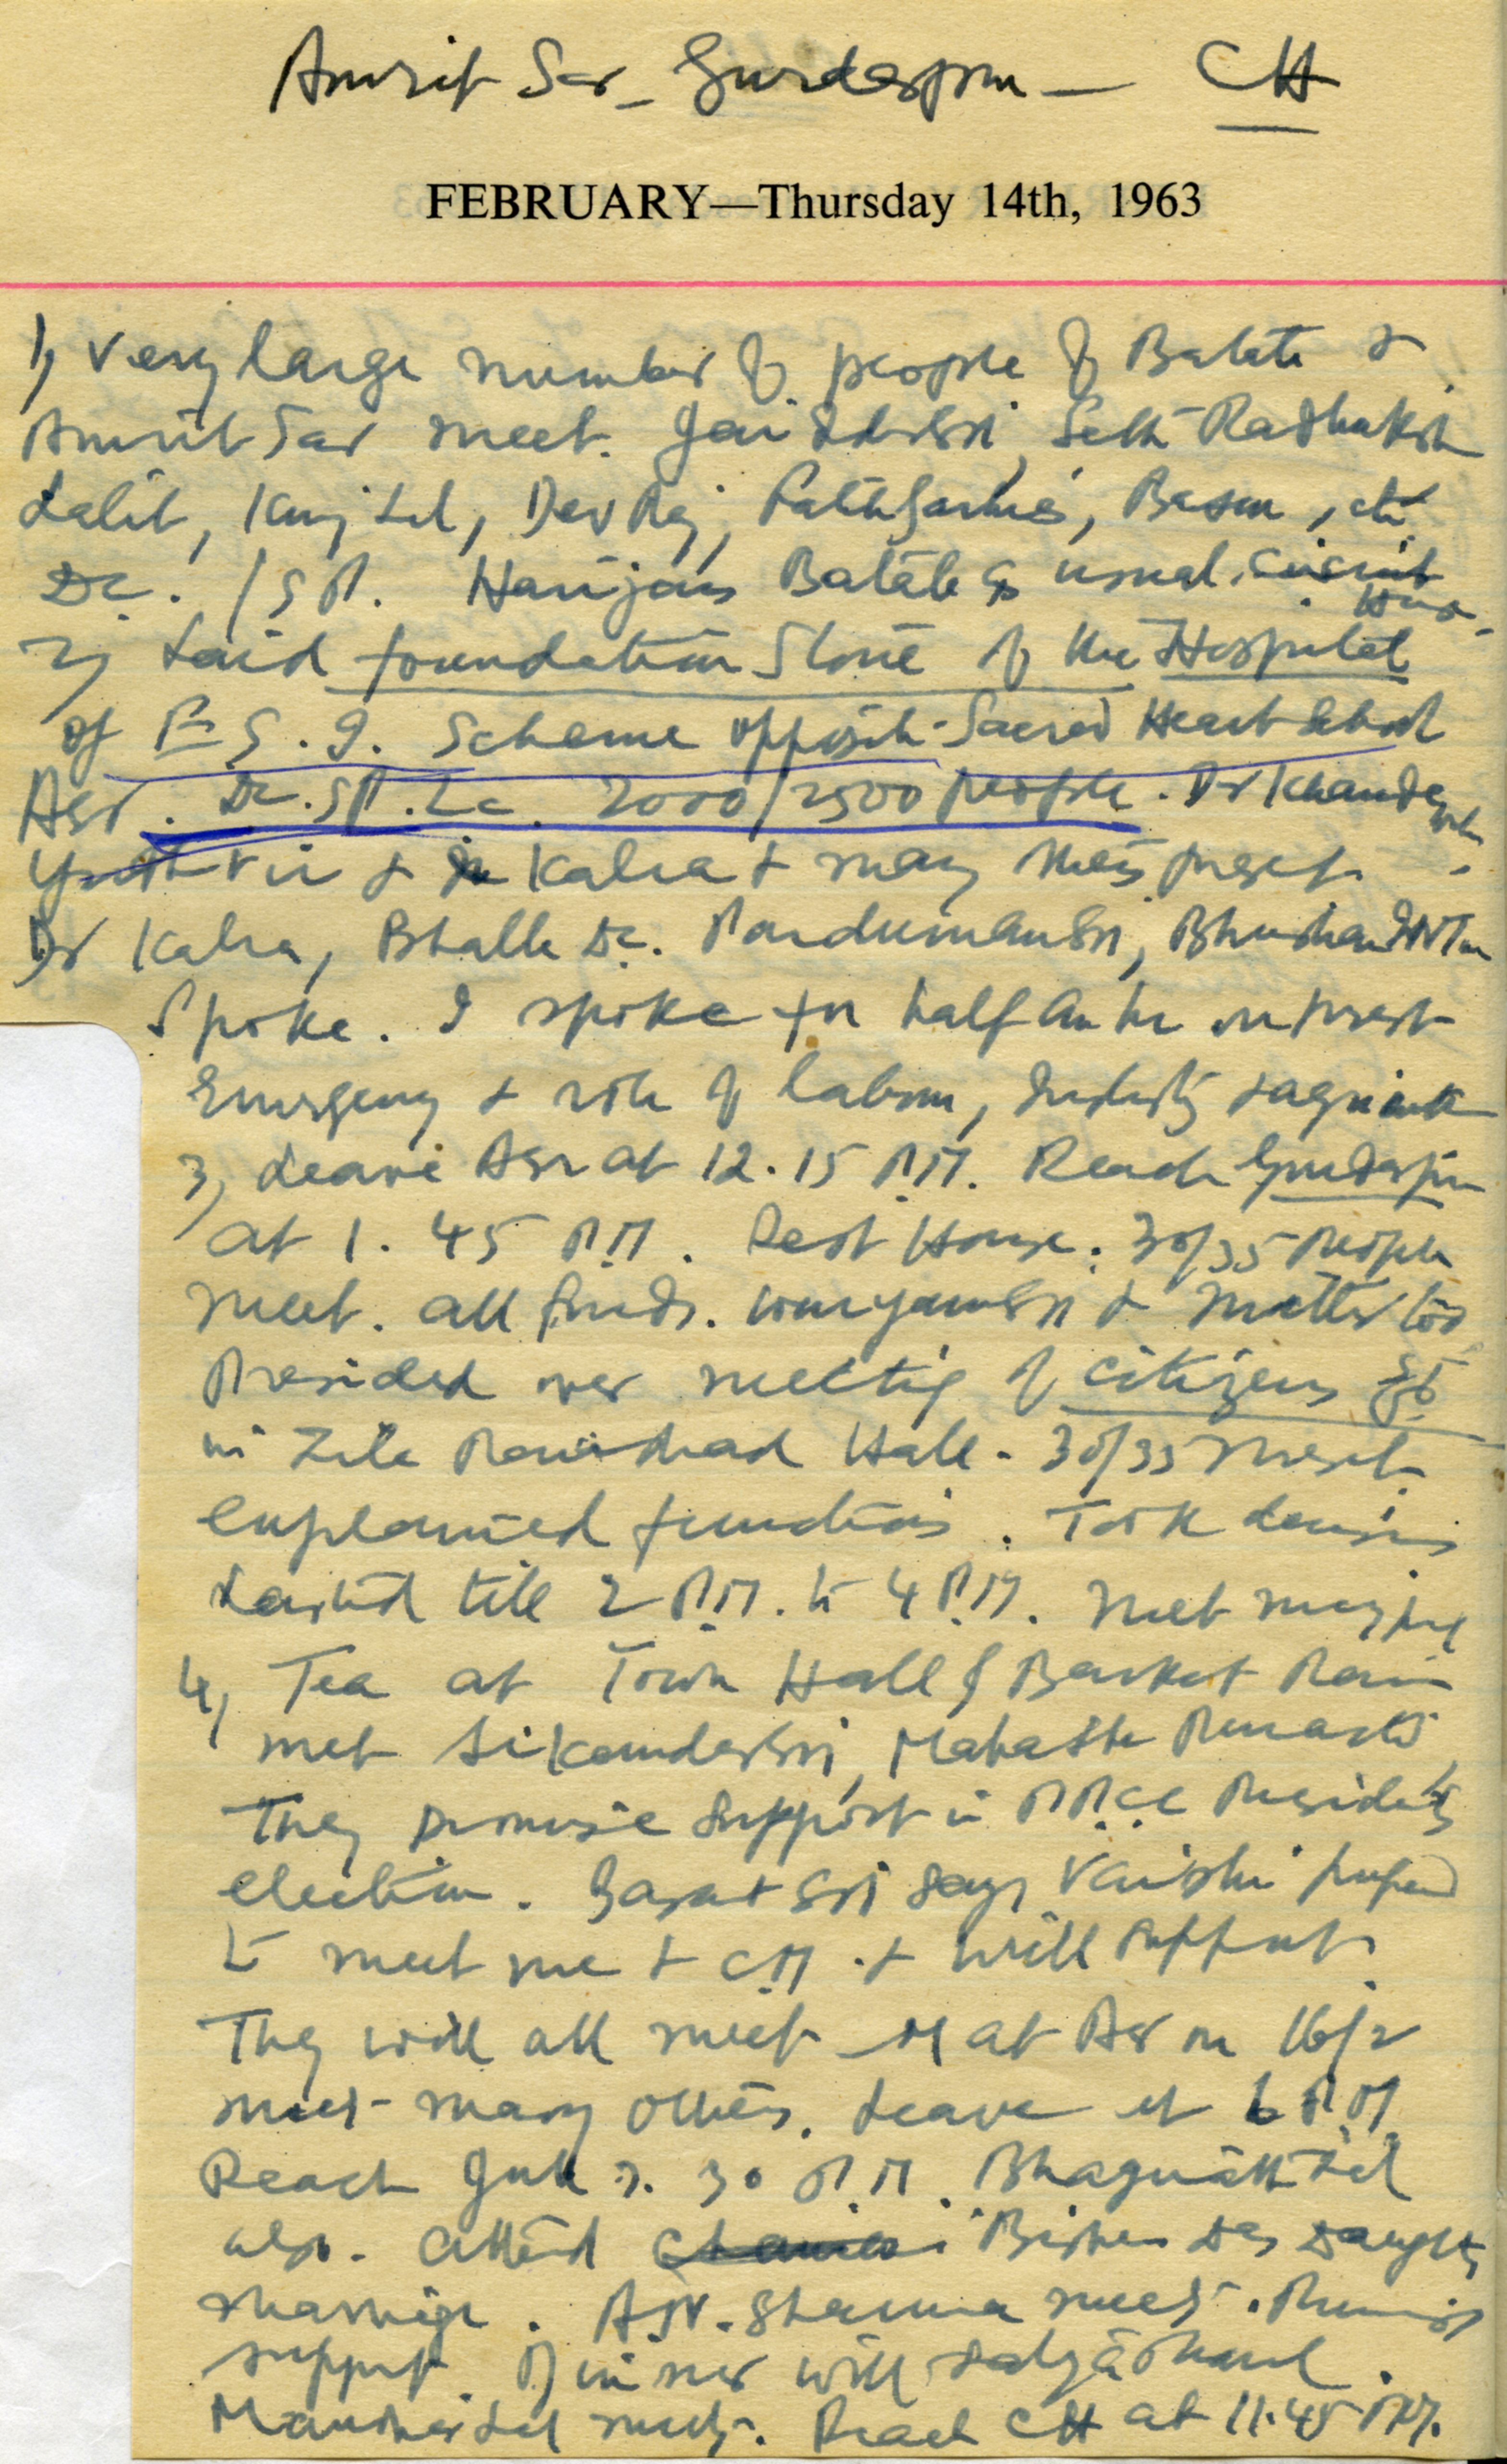 Amrit Sar - Gurdaspur - CH
FEBRUARY—Thursday 14th, 1963
1) Very large number of people of Batala &
Amrit Sar meet. Seth Radhakish
Lalit, Dev Raj, etc
DC. / SP. Harijans Batala as usual. Circuit House.
2) Laid foundation Stone of the Hospital
of E S. I. Scheme opposite Sacred Heart School
Asr. DC. SP. LC. 2000/2500 people. Dr
Yudhvir & Kalra & many others present.
Dr Kalra, Bhalla DC. Parduman Singh, Bhushan
Spoke. I spoke for half an hr on present
Emergency & role of labour, Industry & agriculture
3) Leave Asr at 12.15 P.M. Reach Gurdaspur
at 1.45 P.M. Rest House. 30/35 people
meet. all friends. & too
Presided over meeting of citizens
in Zila Parishad Hall - 30/35 present
explained functions. Took decisions
Lasted till 2 P.M. to 4 P.M. meet many
4) Tea at Town Hall of Barkat Ram
met Sikander Singh, Mahasha
They promise Support in PPCC Presidents
election. says Vaishi prepared
to meet me & CM. & will support.
They will all meet at Asr on 16/2
meet many others. Leave at 6 P.M.
Reach Jull 7.30 P.M. Bhagwatt Lal
also. attend Bishen Das Daughters
marriage. A.N. Sharma meet. Promises
support. Dinner with Satya
Manohar Lal meets. Reach CH at 11.45 P.M.